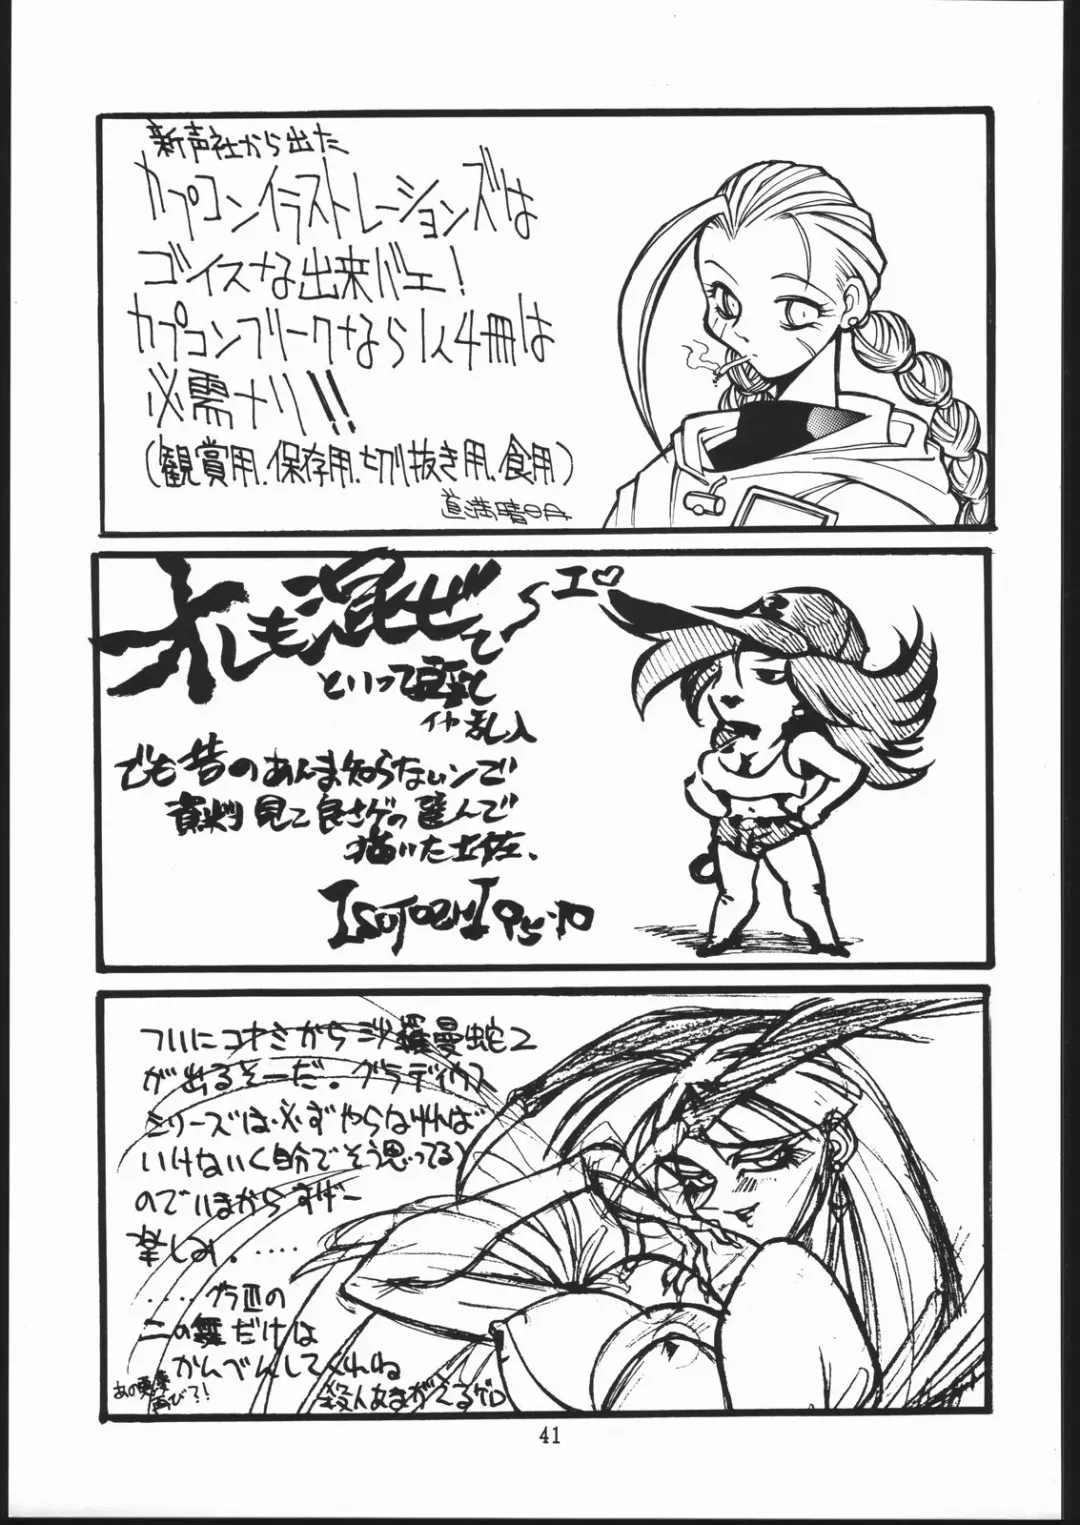 新声社から出た
カプコンイラストレーションズは
ゴイスな出来バエ!
カプコンフリークなら1人4冊は
必需ナリ!!
(観賞用.保存用.切り抜き用.食用)
道満晴明
オレも混ぜて〜エ♡
といって
イヤ乱入
でも昔のあんま知らないンで
資料見て良さげの選んで
描いた土佐、
ついにコナミから沙羅曼蛇2
が出るそーだ。グラディウス
シリーズは必ずやらなければ
いけないく自分でそう思ってる)
のでいまからすげー
楽しみ。‥‥
‥‥グラIIIの
二の舞だけは
かんべんしてくれね
あの悪夢
再び?!
殺人あまがえるゲロ
41